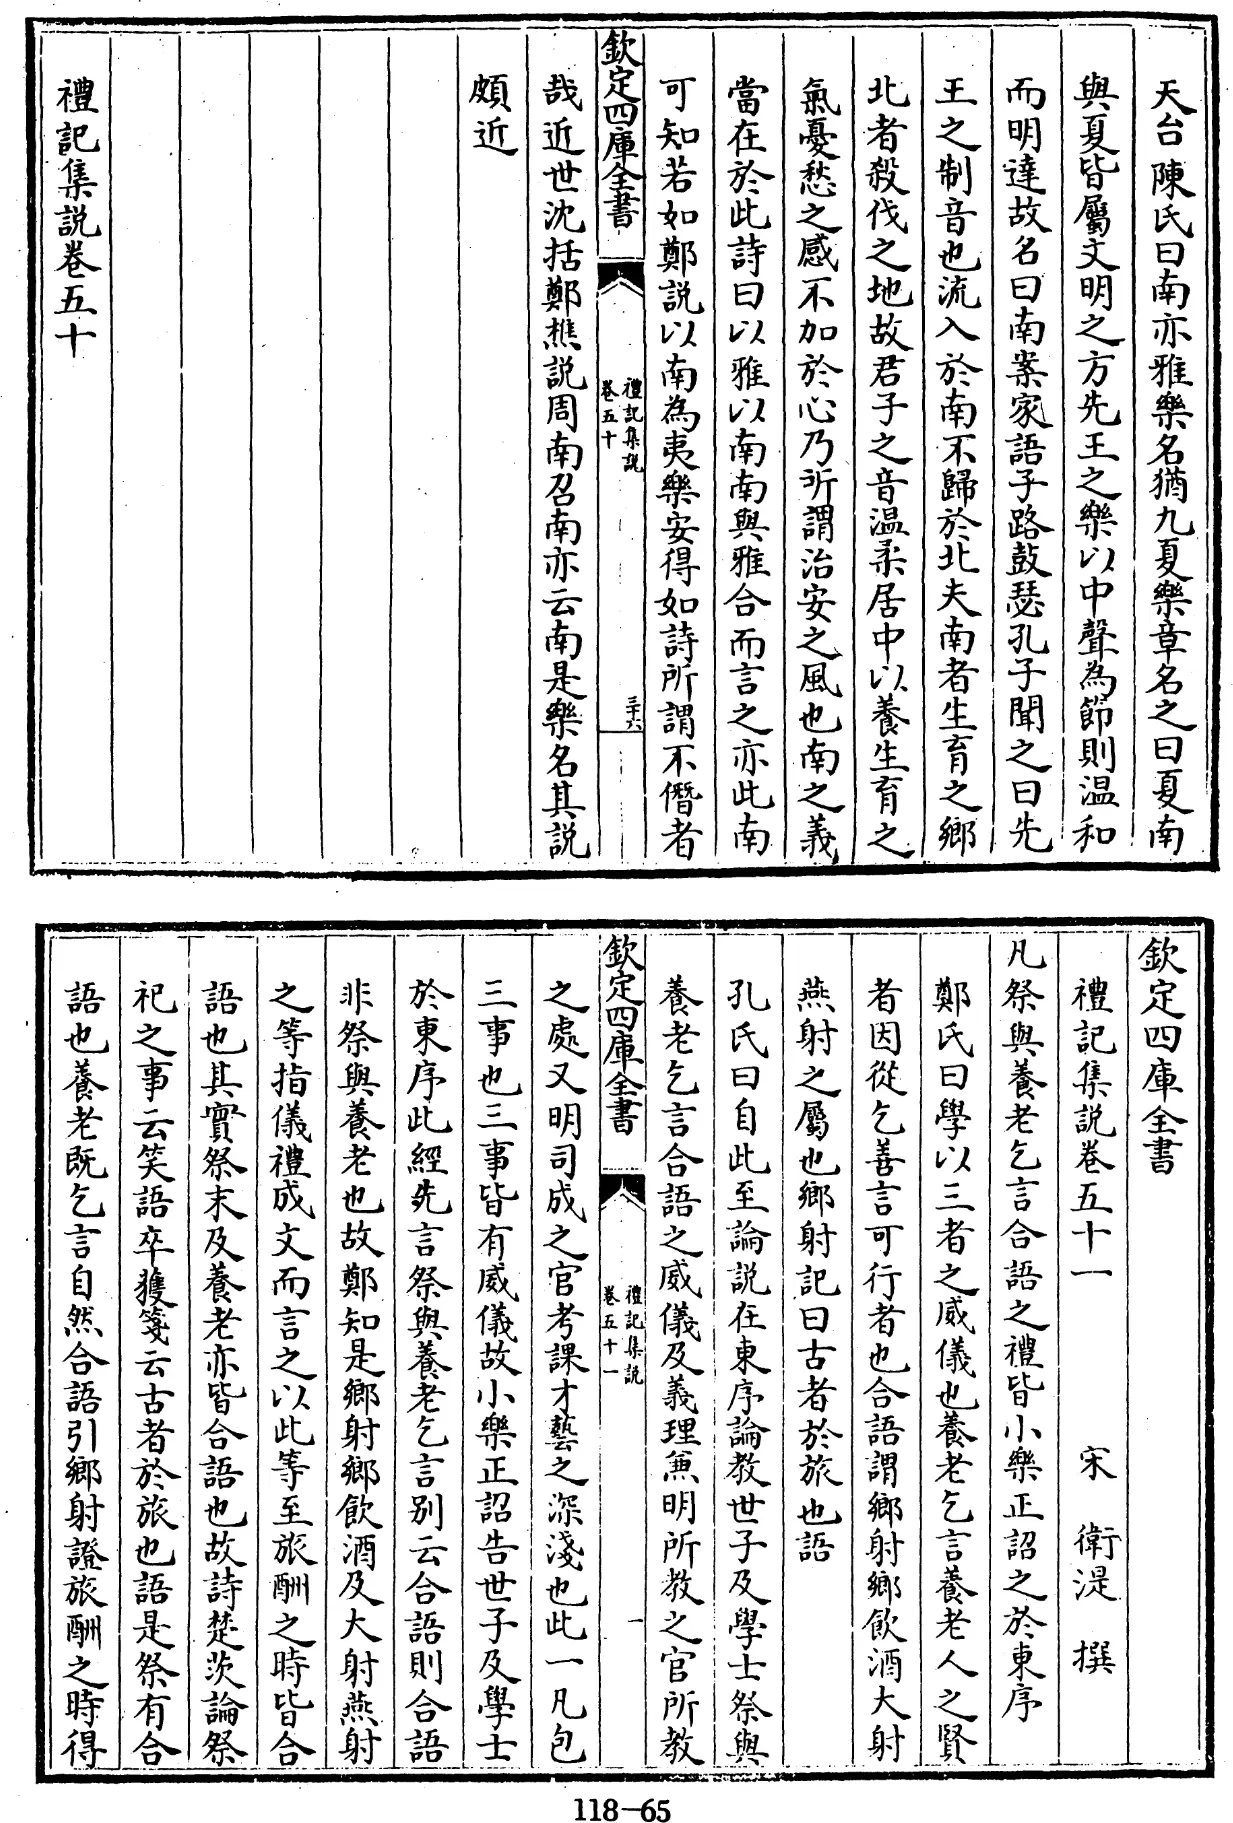 天台陳氏曰南亦雅樂名猶九夏樂章名之曰夏南
與夏皆屬文明之方先王之樂以中聲為節則温和
而明達故名曰南案家語子路鼓瑟孔子聞之曰先
王之制音也流入於南不歸於北夫南者生育之鄉
北者殺伐之地故君子之音温柔居中以養生育之
氣憂愁之感不加於心乃所謂治安之風也南之義
當在於此詩曰以雅以南南與雅合而言之亦此南
可知若如鄭說以南為夷樂安得如詩所謂不僭者
欽定四庫全書
禮記集說
卷五十
三十六
哉近世沈括鄭樵說周南召南亦云南是樂名其說
頗近
禮記集說卷五十
欽定四庫全書
禮記集說卷五十一 宋 衛湜 撰
凡祭與養老乞言合語之禮皆小樂正詔之於東序
鄭氏曰學以三者之威儀也養老乞言養老人之賢
者因從乞善言可行者也合語謂鄉射鄉飲酒大射
燕射之屬也鄉射記曰古者於旅也語
孔氏曰自此至論說在東序論教世子及學士祭與
養老乞言合語之威儀及義理兼明所教之官所教
欽定四庫全書
禮記集說
卷五十一
一
之處又明司成之官考課才藝之深淺也此一凡包
三事也三事皆有威儀故小樂正詔告世子及學士
於東序此經先言祭與養老乞言別云合語則合語
非祭與養老也故鄭知是鄉射鄉飲酒及大射燕射
之等指儀禮成文而言之以此等至旅酬之時皆合
語也其實祭末及養老亦皆合語也故詩楚茨論祭
祀之事云笑語卒獲箋云古者於旅也語是祭有合
語也養老既乞言自然合語引鄉射證旅酬之時得
118-65